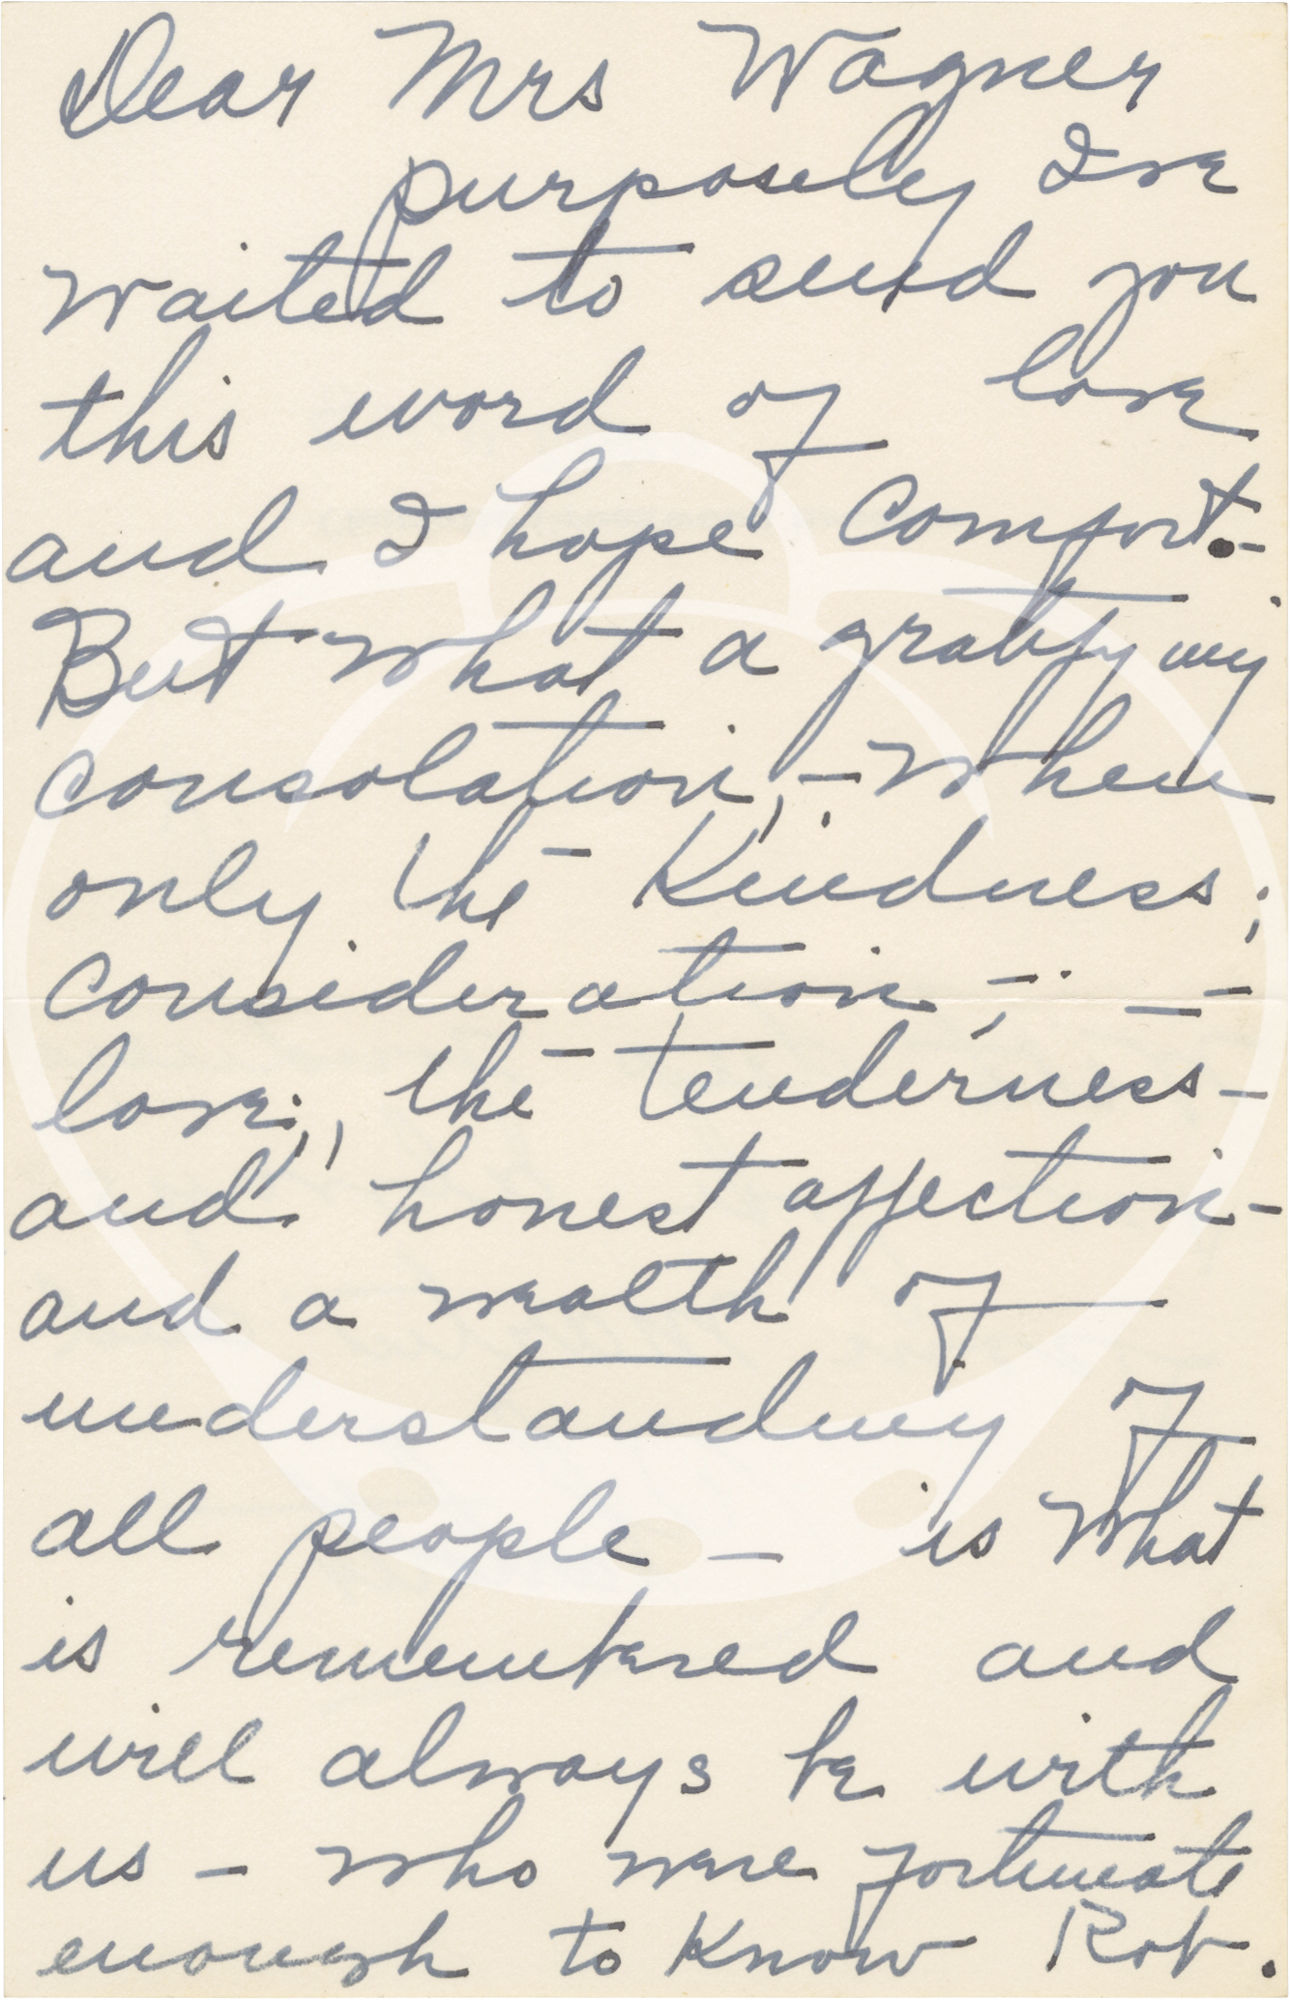 Dear Mrs Wagner
purposely I've
waited to send you
this word of love
and I hope Comfort.-
But what a gratifying
consolation, - when
only the Kindness;
Consideration -; --
love;, the tenderness-
and honest affection-
and a wealth of
understanding of
all people - is what
is remembered and
will always be with
us - who were fortunate
enough to know Rob.